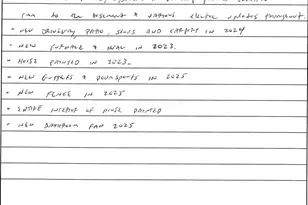 to the basement & various electric updates throughout
• New Driveway, Patio, Steps and Carpets in 2024
• New Furnace & HVAC in 2023.
• House Painted in 2023.
• New Gutters & Downspouts in 2025
• New Fence in 2025
• Entire Interior of House Painted
• New Bathroom Fan 2025